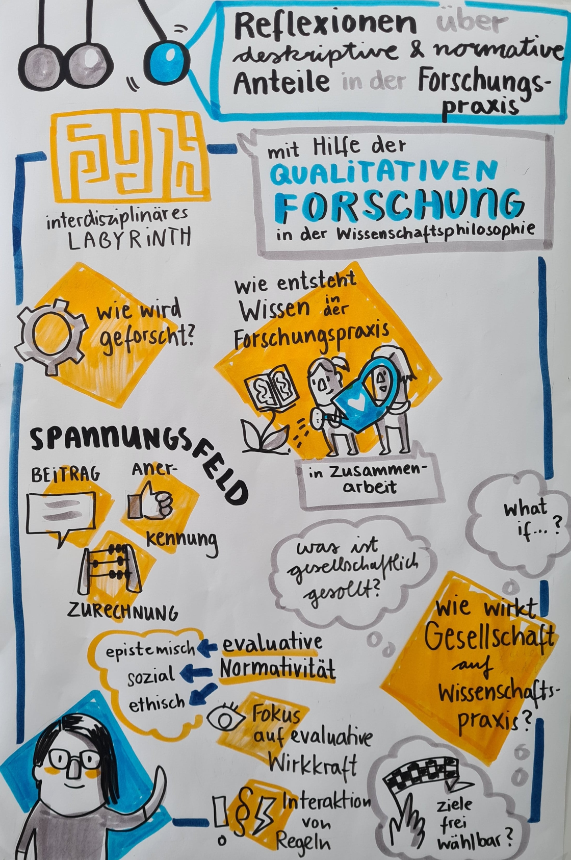 Reflexionen über
deskriptive & normative
Anteile in der Forschungs-
praxis
mit Hilfe der
QUALITATIVEN
FORSCHUNG
in der Wissenschaftsphilosophie
interdisziplinäres
LABYRINTH
wie wird
geforscht?
wie entsteht
Wissen in der
Forschungspraxis
in Zusammen-
arbeit
SPANNUNGSFELD
BEITRAG
Aner-
kennung
ZURECHNUNG
what
if...?
was ist
gesellschaftlich
gesollt?
wie wirkt
Gesellschaft
auf
Wissenschafts-
praxis?
epistemisch
sozial
ethisch
evaluative
Normativität
Fokus
auf evaluative
Wirkkraft
! §
Interaktion
von
Regeln
ziele
frei
wählbar?